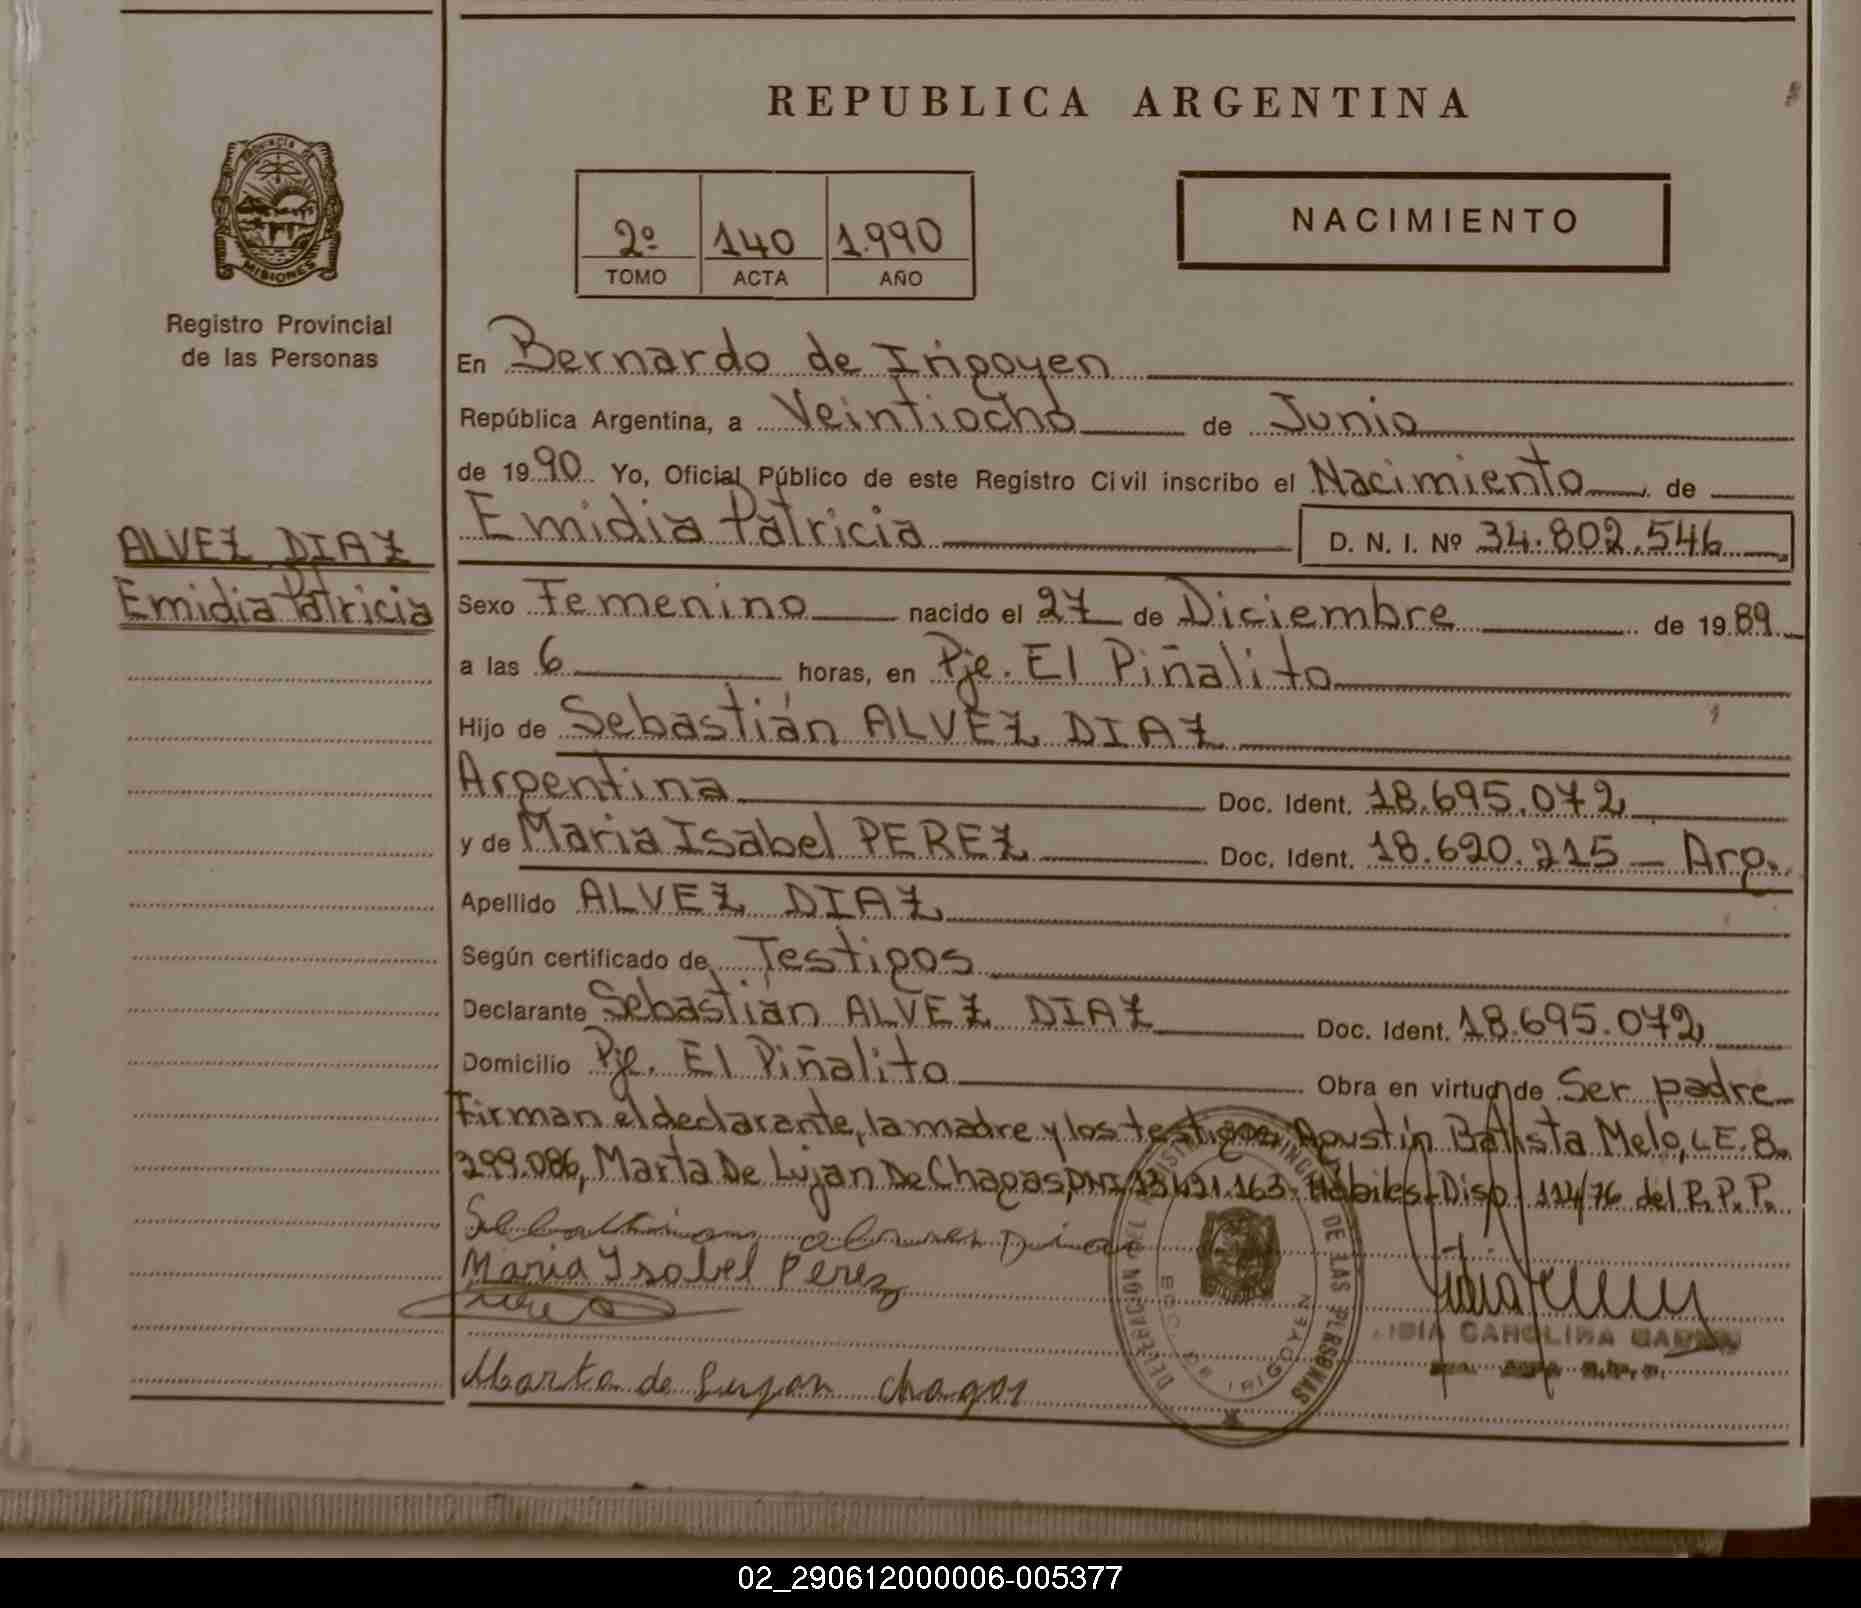 REPUBLICA ARGENTINA
PROVINCIA DE
MISIONES
Registro Provincial
de las Personas
2º 140 1.990
TOMO ACTA AÑO
NACIMIENTO
En Bernardo de Irigoyen
República Argentina, a Veintiocho de Junio
de 1990 Yo, Oficial Público de este Registro Civil inscribo el Nacimiento de
ALVEZ DIAZ
Emidia Patricia
Emidia Patricia D. N. I. Nº 34.802.546
Sexo Femenino nacido el 27 de Diciembre de 1989
a las 6 horas, en Pje. El Piñalito
Hijo de Sebastián ALVEZ DIAZ
Argentina Doc. Ident. 18.695.072
y de Maria Isabel PEREZ Doc. Ident. 18.620.215 - Arg.
Apellido ALVEZ DIAZ
Según certificado de Testigos
Declarante Sebastián ALVEZ DIAZ Doc. Ident. 18.695.072
Domicilio Pje. El Piñalito Obra en virtud de Ser padre
Firman el declarante, la madre y los testigos Agustín Batista Melo, L.E. 8.
299.086, Marta De Lujan De Chagas, DNI 13.421.163- Hábiles- Disp. 114/76 del R.P.P.
Maria Ysabel Perez
Marta de Lujan Chagas
DELEGACION DE LAS PERSONAS
BDO. DE IRIGOYEN
CAROLINA
02_290612000006-005377